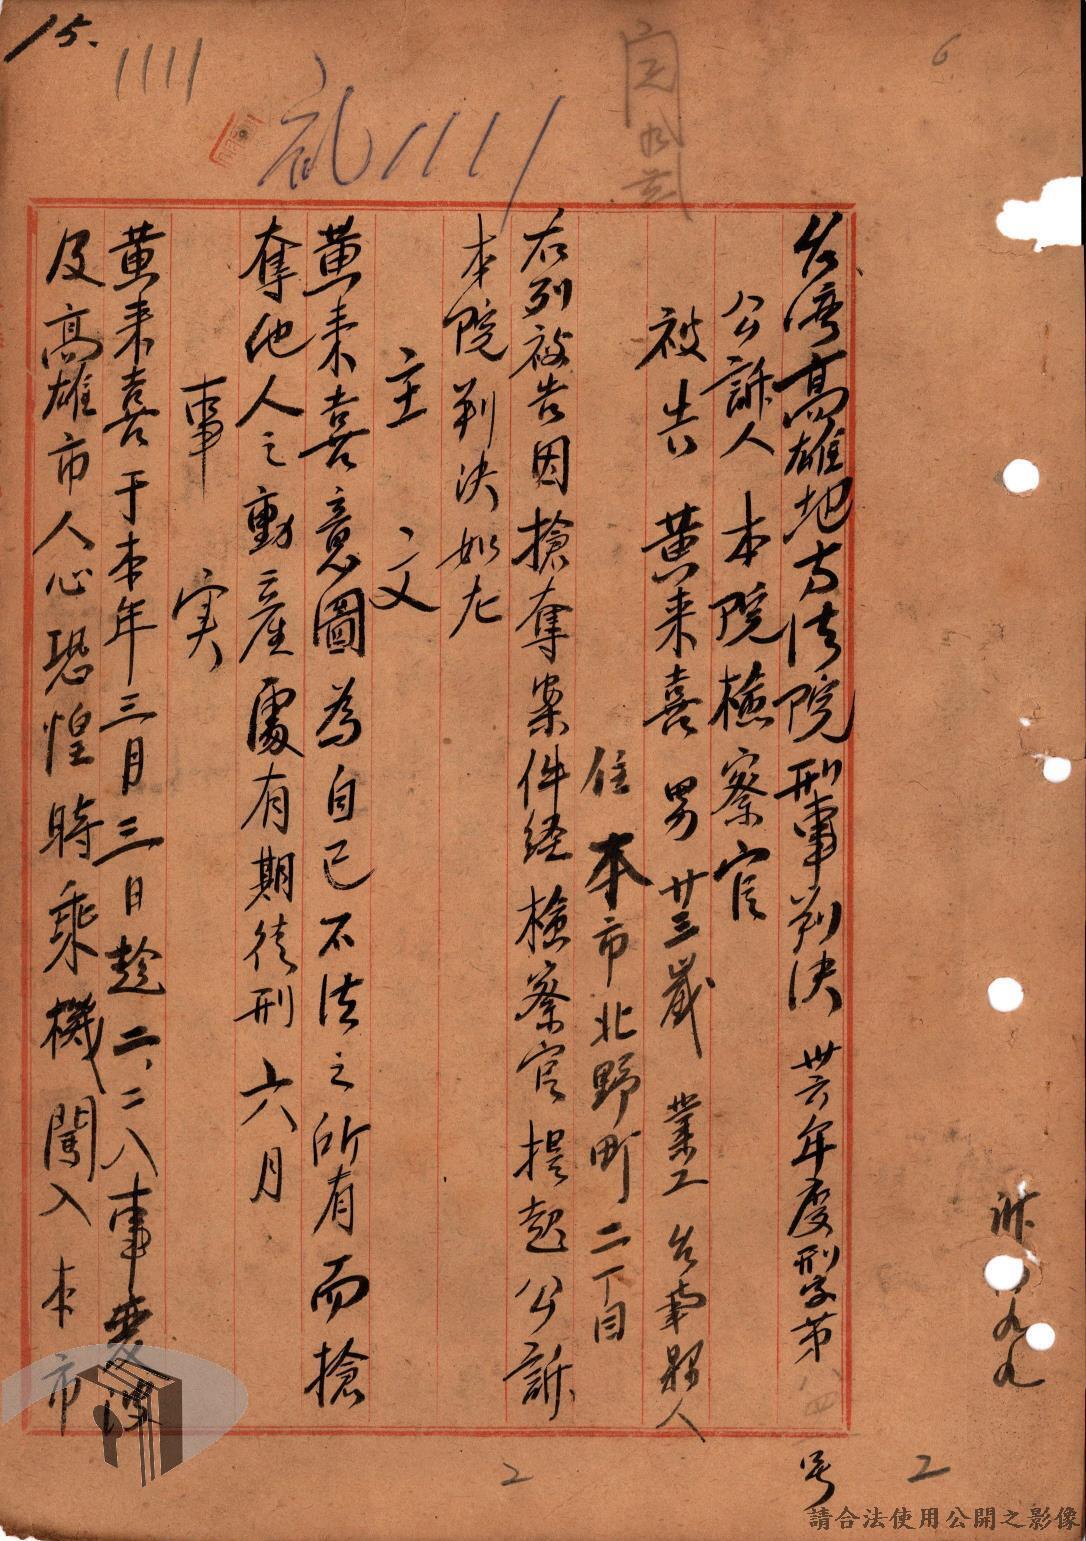 15.
1111
乱1111
6
台湾高雄地方法院刑事判決 卅六年度刑字第八四号
公訴人 本院檢察官
被告 黄来喜 男 廿三歲 業工 台南縣人
住 本市北野町二丁目
右列被告因搶奪案件经檢察官提起公訴
本院判決如左
主文
黄来喜意圖為自己不法之所有而搶
奪他人之動産處有期徒刑六月
事実
黄来喜于本年三月三日趁二、二八事変波
及高雄市人心恐惶時乘機闖入本市
2
2
請合法使用公開之影像